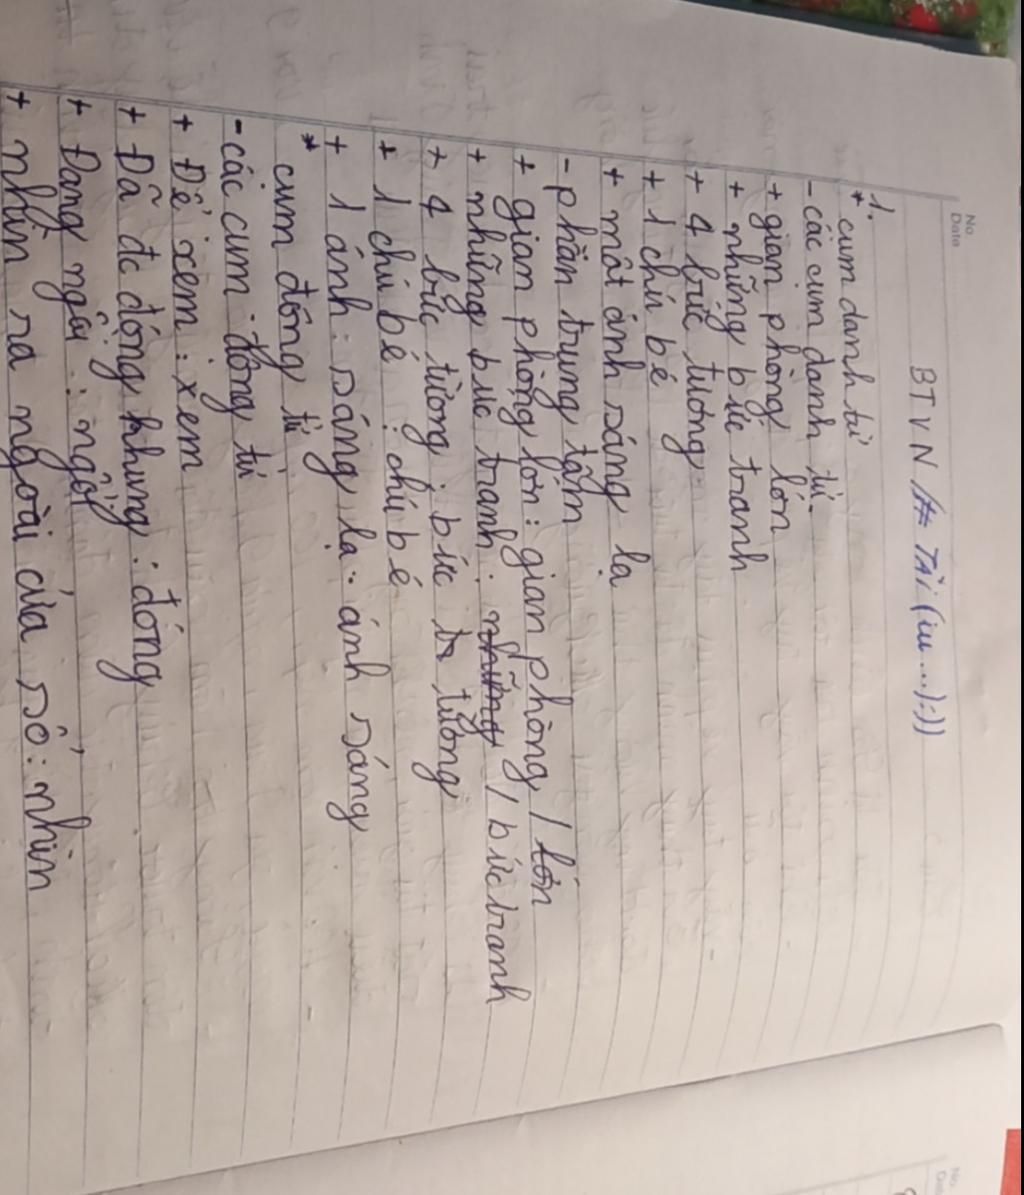 No
Date
BTVN /# TÀi (iu...):))
1.
* cụm danh từ
- các cụm danh từ
+ gian phòng lớn
+ những bức tranh
+ 4 bức tường
+ 1 chú bé
+ một ánh sáng lạ
- phần trung tâm
+ gian phòng lớn: gian phòng / lớn
+ những bức tranh: những / bức tranh
+ 4 bức tường: bức tr tường
+ 1 chú bé: chú bé
+ 1 ánh sáng lạ: ánh sáng
* cụm động từ
- các cụm động từ
+ Để xem: xem
+ Đã đc đóng khung: đóng
+ Đang ngồi: ngồi
+ nhìn ra ngoài cửa sổ: nhìn
No
Date